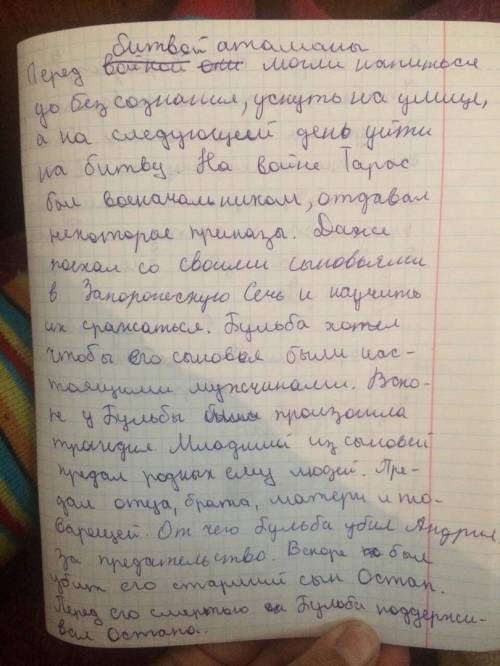 битвой атаманы
Перед войной они могли напиться
до без сознания, уснуть на улице,
а на следующей день уйти
на битву. На войне Тарас
был военачальником, отдавал
некоторые приказы. Даже
поехал со своими сыновьями
в Запорожескую Сечь и научить
их сражаться. Бульба хотел
чтобы его сыновья были нас-
тоящими мужчинами. Вско-
ре у Бульбы была произошла
трагедия. Младший из сыновей
предал родных ему людей. Пре-
дал отца, брата, матери и то-
варищей. От чего Бульба убил Андрия
за предательство. Вскоре был
убит его старший сын Остап.
Перед его смертью Бульба поддержи-
вал Остапа.